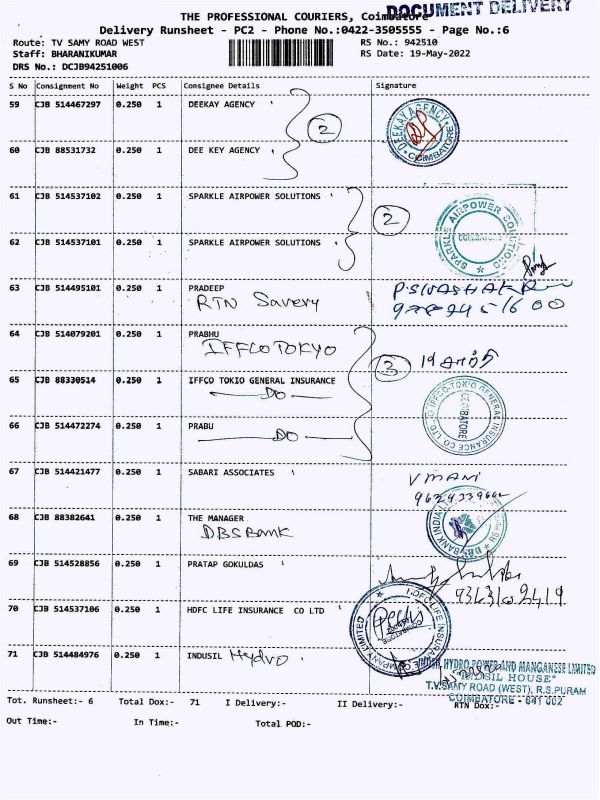 DOCUMENT DELIVERY
THE PROFESSIONAL COURIERS, Coimbatore
Delivery Runsheet - PC2 - Phone No.:0422-3505555 - Page No.:6
Route: TV SAMY ROAD WEST RS No.: 942510
Staff: BHARANIKUMAR RS Date: 19-May-2022
DRS No.: DCJB94251006
S No Consignment No Weight PCS Consignee Details Signature
59 CJB 514467297 0.250 1 DEEKAY AGENCY
2
DEEKAY AGENCY COIMBATORE
60 CJB 88531732 0.250 1 DEE KEY AGENCY
61 CJB 514537102 0.250 1 SPARKLE AIRPOWER SOLUTIONS
2
SPARKLE AIRPOWER SOLUTIONS COIMBATORE
62 CJB 514537101 0.250 1 SPARKLE AIRPOWER SOLUTIONS
63 CJB 514495101 0.250 1 PRADEEP
RTN Savery
64 CJB 514079201 0.250 1 PRABHU
IFFCO TOKYO
3
65 CJB 88330514 0.250 1 IFFCO TOKIO GENERAL INSURANCE
DO
IFFCO-TOKIO GENERAL INSURANCE CO. LTD. COIMBATORE
66 CJB 514472274 0.250 1 PRABU
DO
67 CJB 514421477 0.250 1 SABARI ASSOCIATES
V MANI
68 CJB 88382641 0.250 1 THE MANAGER
DBS Bank
DBS BANK INDIA
69 CJB 514528856 0.250 1 PRATAP GOKULDAS
70 CJB 514537106 0.250 1 HDFC LIFE INSURANCE CO LTD
HDFC LIFE INSURANCE COMPANY LIMITED
71 CJB 514484976 0.250 1 INDUSIL Hydro
INDSIL HYDRO POWER AND MANGANESE LIMITED
"INDSIL HOUSE"
T.V.SAMY ROAD (WEST), R.S.PURAM
COIMBATORE - 641 002
Tot. Runsheet:- 6 Total Dox:- 71 I Delivery:- II Delivery:- RTN Dox:-
Out Time:- In Time:- Total POD:-